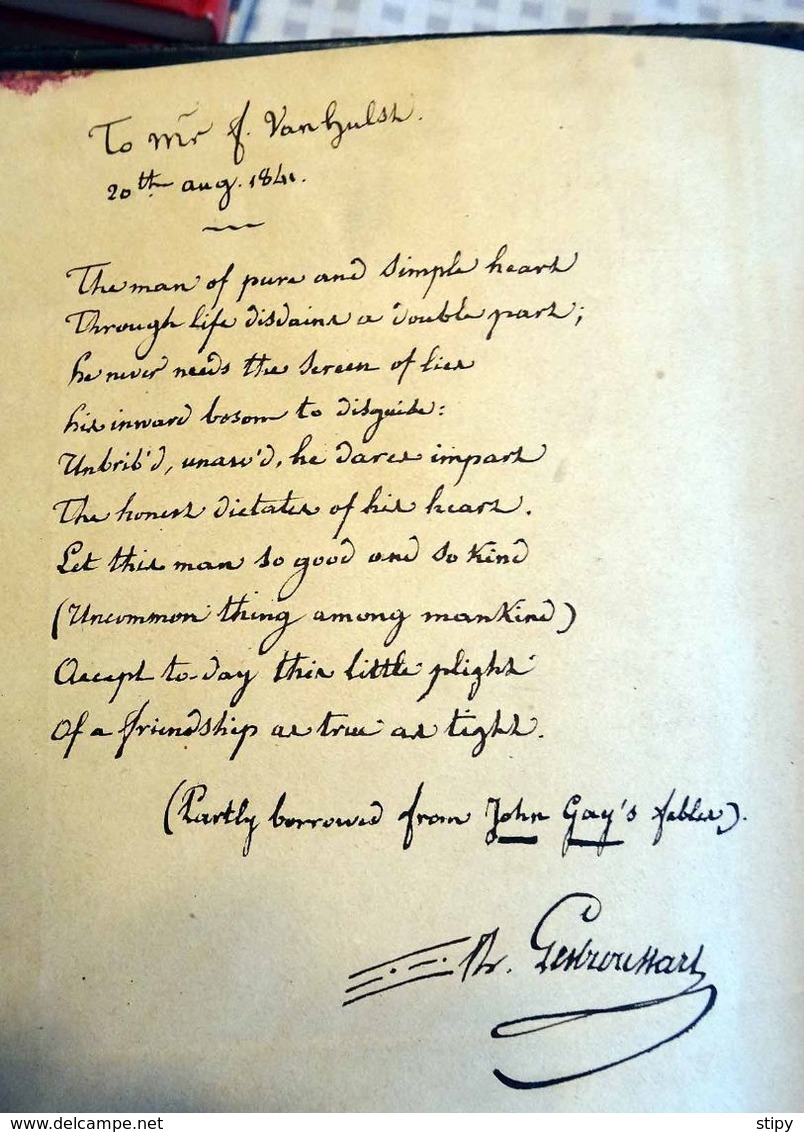 To Mr f. Van hulst.
20th aug. 1841.
The man of pure and simple heart
Through life disdains a double part;
he never needs the screen of lies
his inward bosom to disguise:
Unbrib'd, unaw'd, he dares impart
The honest dictates of his heart.
Let this man so good and so kind
(Uncommon thing among mankind)
Accept to-day this little plight
Of a friendship as true as tight.
(Partly borrowed from John Gay's fables).
stipy